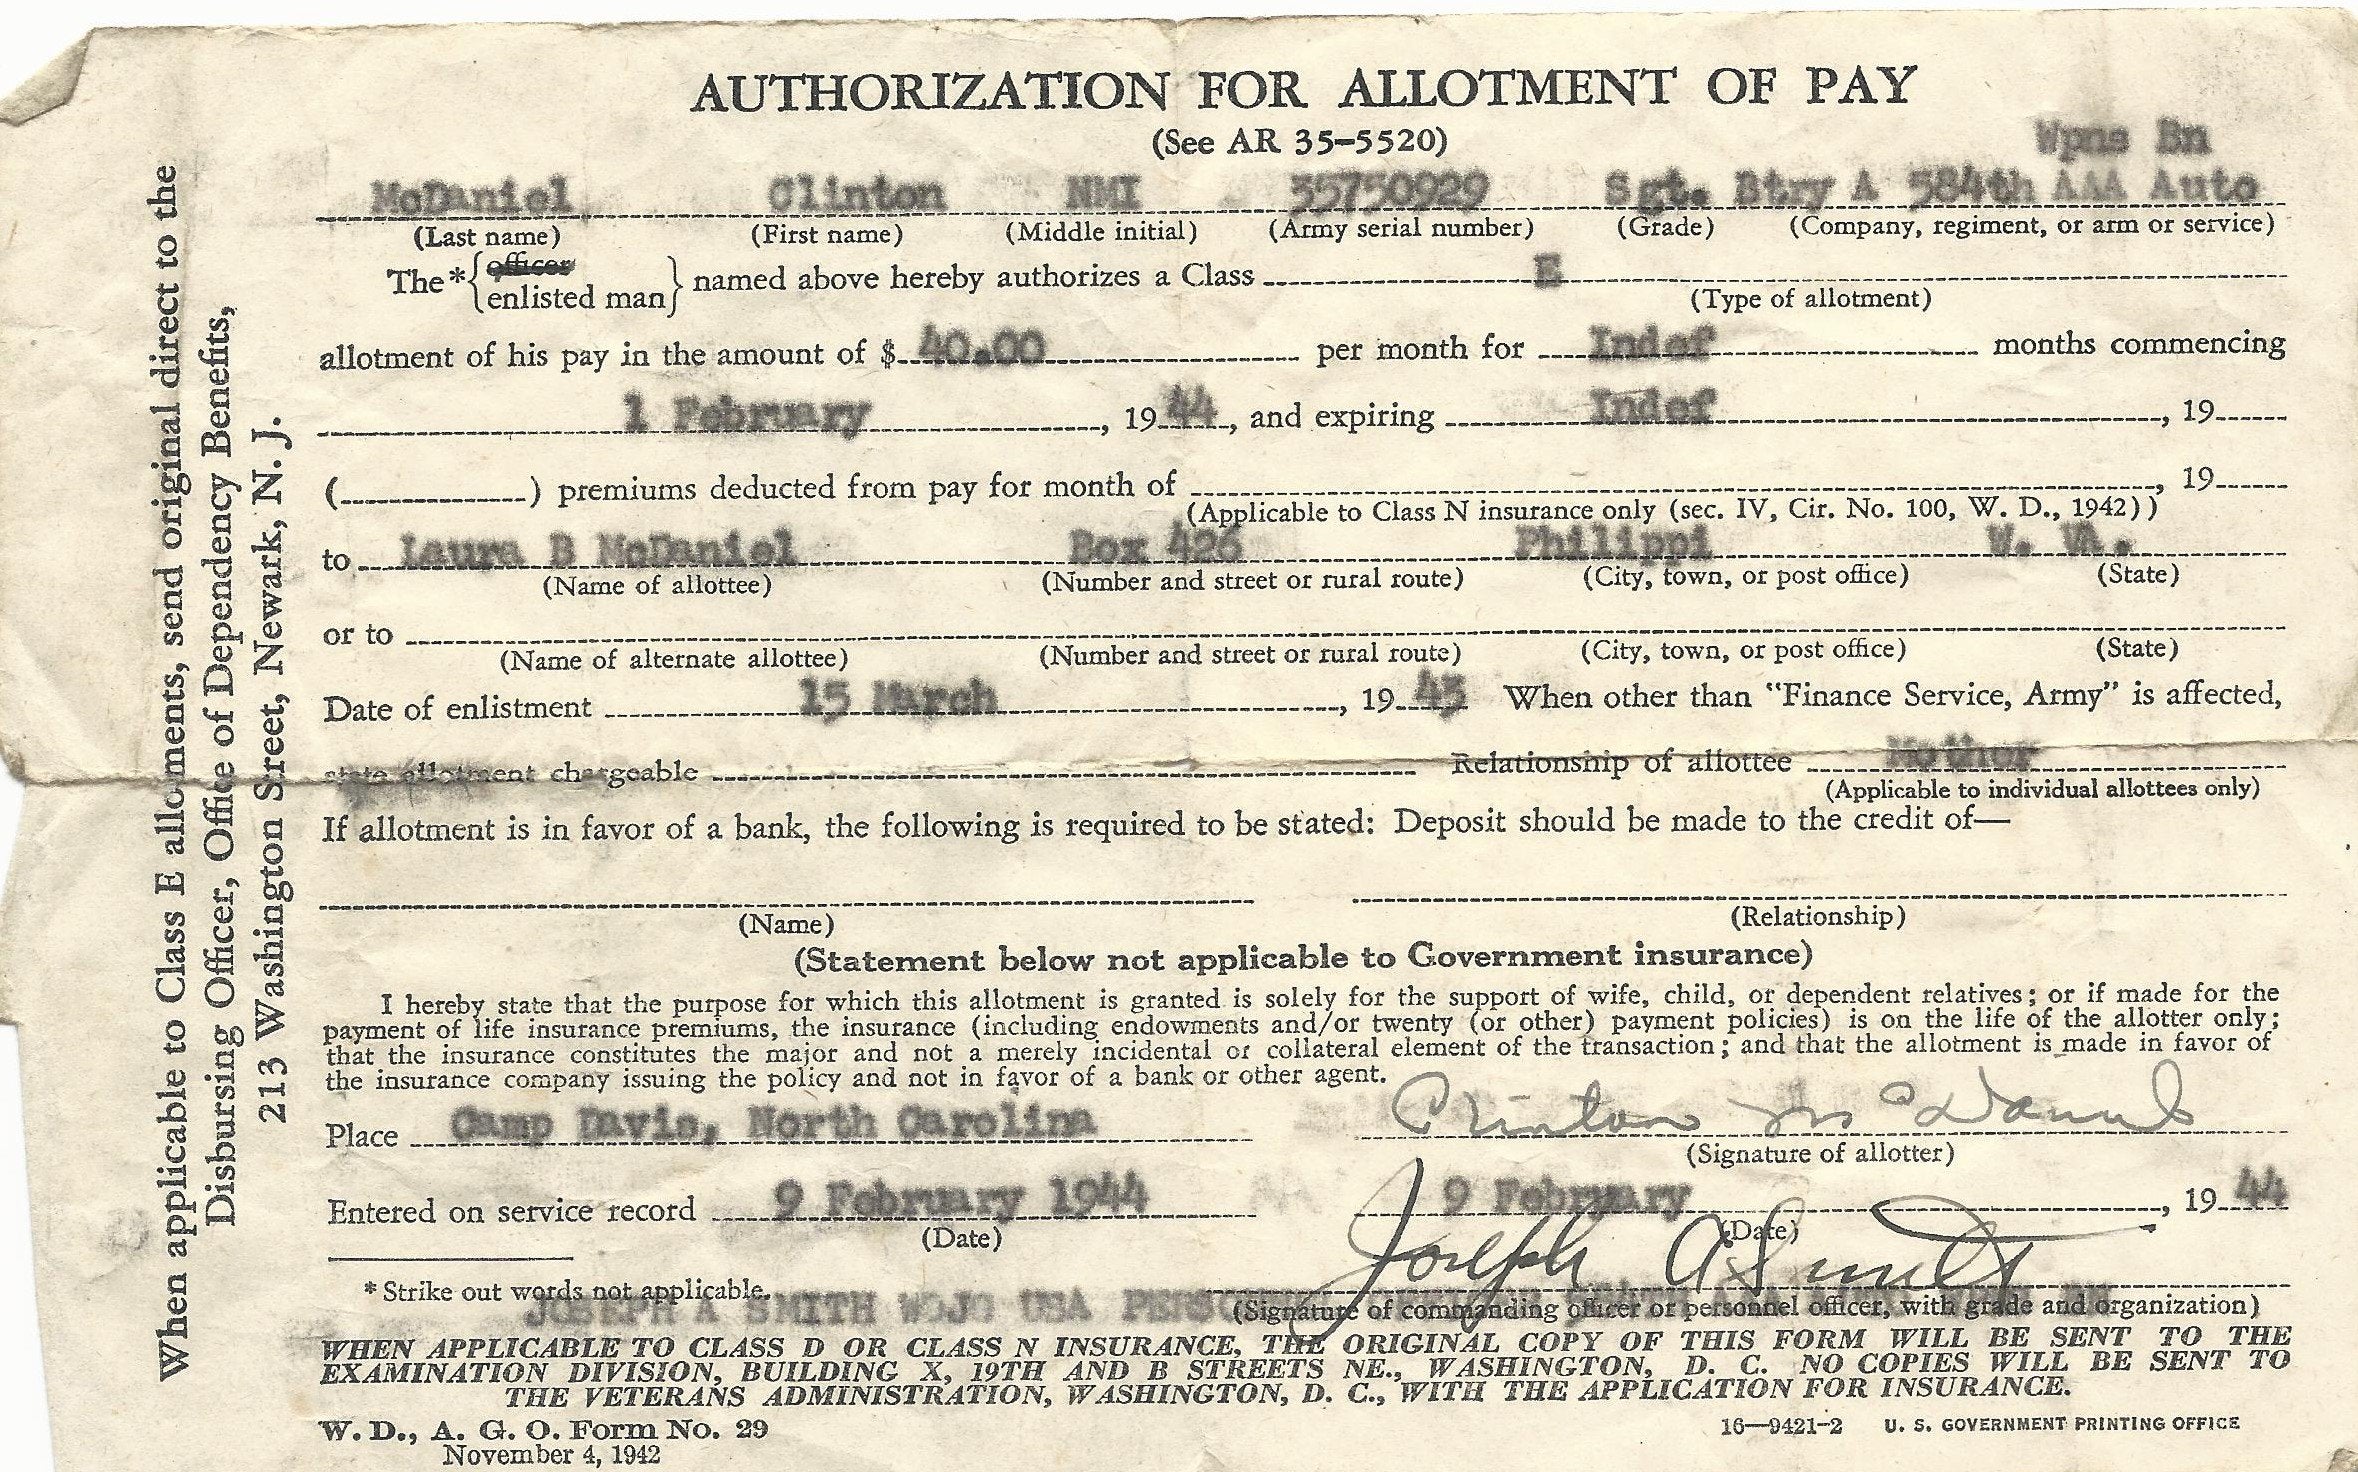 AUTHORIZATION FOR ALLOTMENT OF PAY
(See AR 35-5520)
Wpns Bn
McDaniel Clinton NMI 35750929 Sgt. Btry A 584th AAA Auto
(Last name) (First name) (Middle initial) (Army serial number) (Grade) (Company, regiment, or arm or service)
The * { officer enlisted man } named above hereby authorizes a Class E
(Type of allotment)
allotment of his pay in the amount of $ 40.00 per month for Indef months commencing
1 February, 1944, and expiring Indef, 19
( ) premiums deducted from pay for month of , 19
(Applicable to Class N insurance only (sec. IV, Cir. No. 100, W. D., 1942))
to Laura B McDaniel Box 426 Philippi W. VA.
(Name of allottee) (Number and street or rural route) (City, town, or post office) (State)
or to
(Name of alternate allottee) (Number and street or rural route) (City, town, or post office) (State)
Date of enlistment 15 March, 1943 When other than "Finance Service, Army" is affected,
state allotment chargeable Relationship of allottee Mother
(Applicable to individual allottees only)
If allotment is in favor of a bank, the following is required to be stated: Deposit should be made to the credit of—
(Name) (Relationship)
(Statement below not applicable to Government insurance)
I hereby state that the purpose for which this allotment is granted is solely for the support of wife, child, or dependent relatives; or if made for the
payment of life insurance premiums, the insurance (including endowments and/or twenty (or other) payment policies) is on the life of the allotter only;
that the insurance constitutes the major and not a merely incidental or collateral element of the transaction; and that the allotment is made in favor of
the insurance company issuing the policy and not in favor of a bank or other agent.
Place Camp Davis, North Carolina Clinton McDaniel
(Signature of allotter)
Entered on service record 9 February 1944 9 February, 1944
(Date) (Date)
Joseph A Smith
* Strike out words not applicable.
JOSEPH A SMITH WOJG USA
(Signature of commanding officer or personnel officer, with grade and organization)
WHEN APPLICABLE TO CLASS D OR CLASS N INSURANCE, THE ORIGINAL COPY OF THIS FORM WILL BE SENT TO THE
EXAMINATION DIVISION, BUILDING X, 19TH AND B STREETS NE., WASHINGTON, D. C. NO COPIES WILL BE SENT TO
THE VETERANS ADMINISTRATION, WASHINGTON, D. C., WITH THE APPLICATION FOR INSURANCE.
W. D., A. G. O. Form No. 29
November 4, 1942
16—9421-2 U. S. GOVERNMENT PRINTING OFFICE
When applicable to Class E allotments, send original direct to the
Disbursing Officer, Office of Dependency Benefits,
213 Washington Street, Newark, N. J.